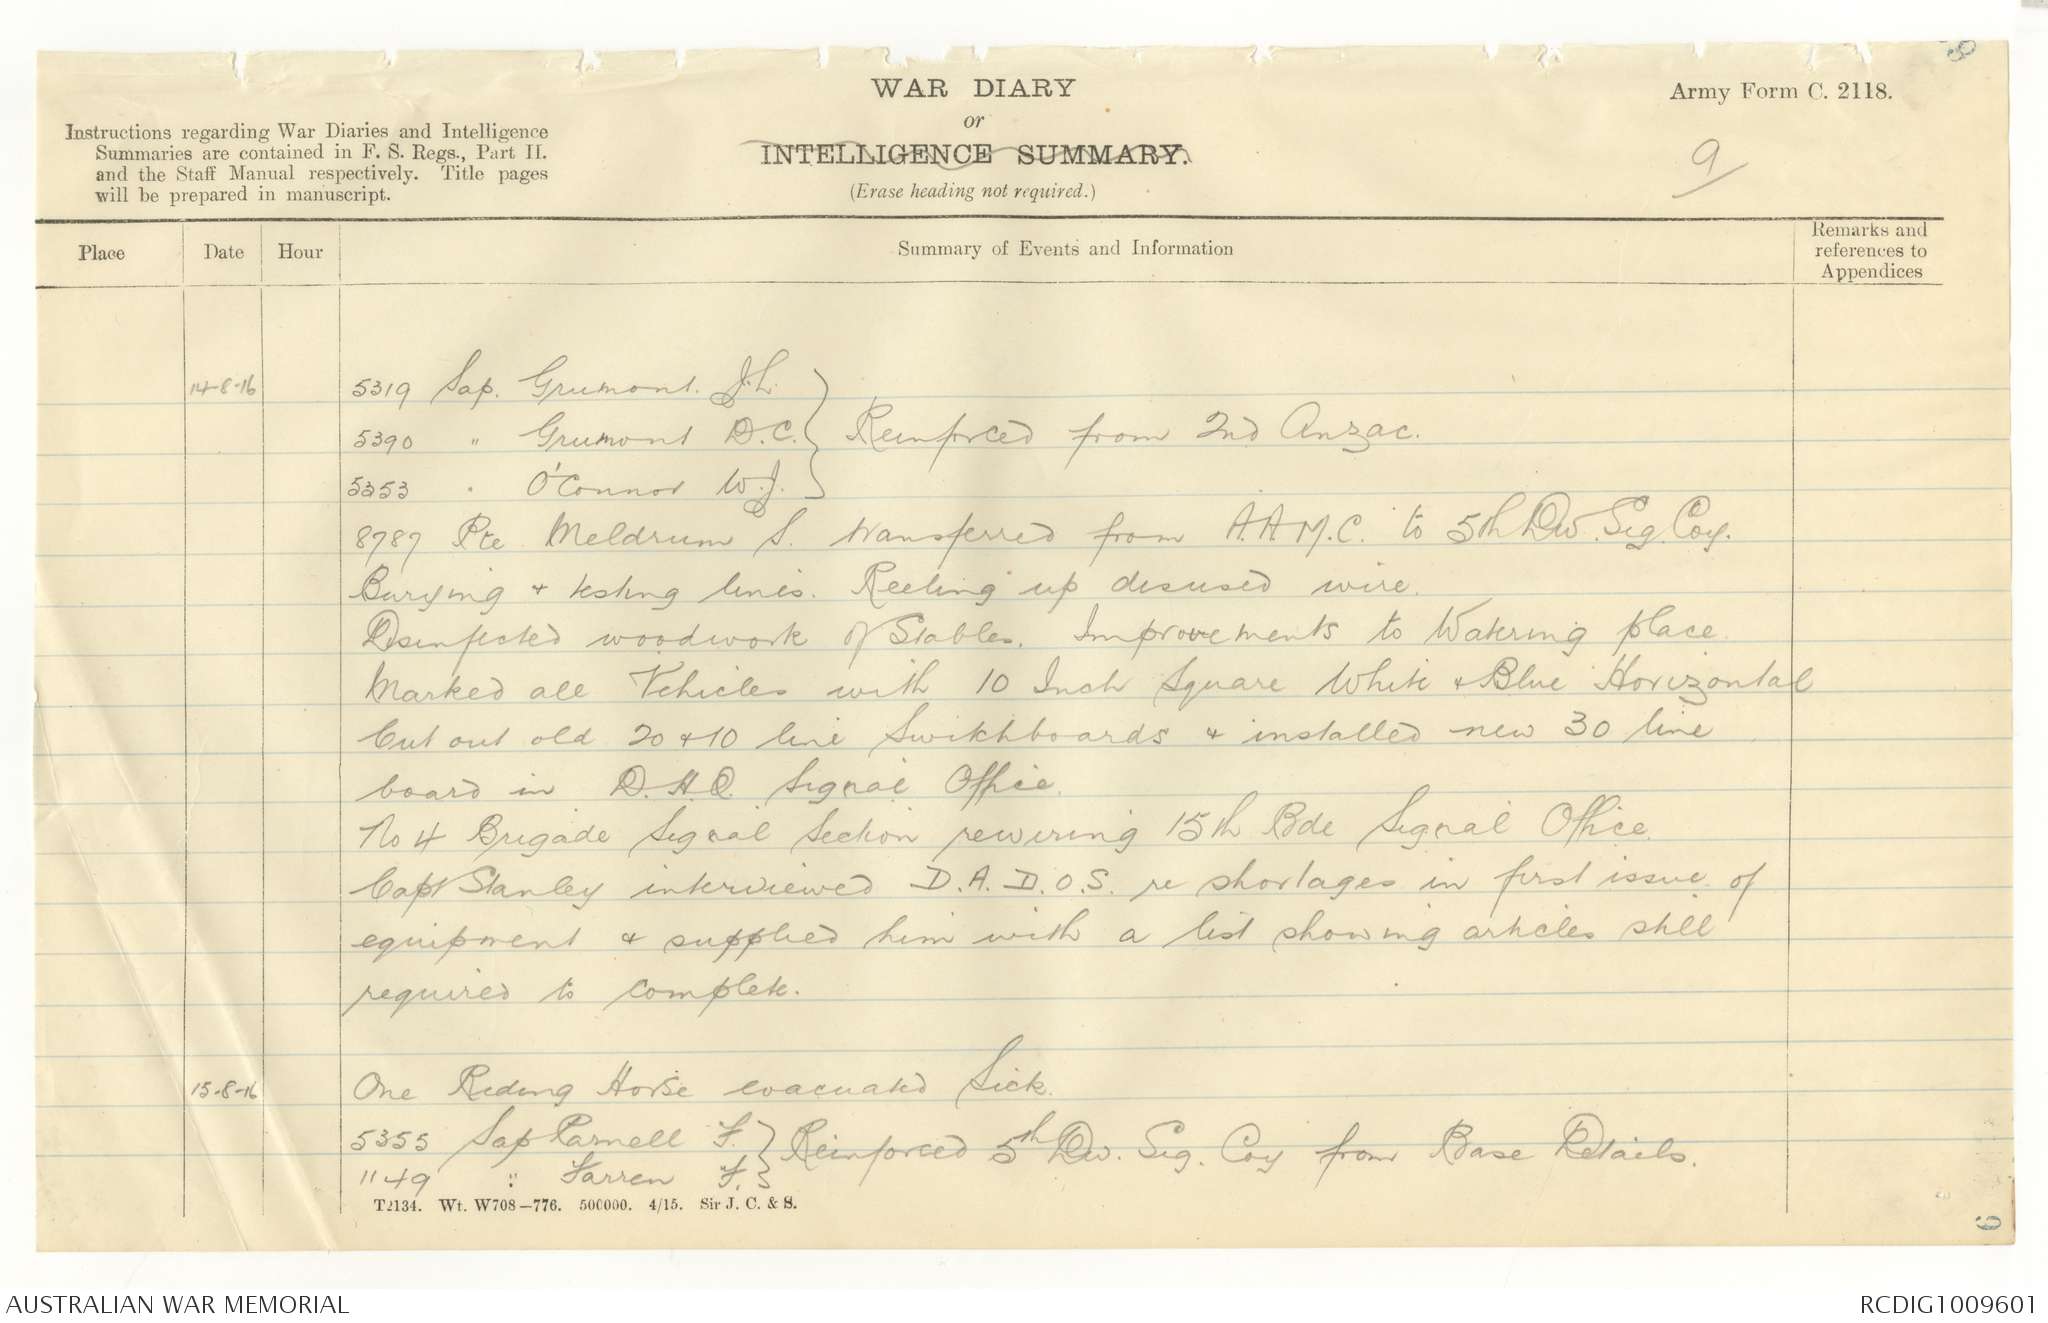 WAR DIARY
or
INTELLIGENCE SUMMARY.
(Erase heading not required.)
Army Form C. 2118.
9
Instructions regarding War Diaries and Intelligence
Summaries are contained in F. S. Regs., Part II.
and the Staff Manual respectively. Title pages
will be prepared in manuscript.
Place Date Hour Summary of Events and Information Remarks and references to Appendices
14-8-16 5319 Sap. Grumont. J.L.
5390 " Grumont D.C. } Reinforced from 2nd Anzac.
5353 " O'Connor W.J.
8787 Pte Meldrum S. transferred from A.A.M.C. to 5th Div. Sig. Coy.
Burying & testing lines. Reeling up disused wire.
Disinfected woodwork of Stables. Improvements to Watering place.
Marked all Vehicles with 10 Inch Square White & Blue Horizontal
Cut out old 20 & 10 line Switchboards & installed new 30 line
board in D.H.Q. Signal Office.
No 4 Brigade Signal Section rewiring 15th Bde Signal Office.
Capt Stanley interviewed D.A.D.O.S. re shortages in first issue of
equipment & supplied him with a list showing articles still
required to complete.
15-8-16 One Riding Horse evacuated Sick.
5355 Sap Parnell F. } Reinforced 5th Div. Sig. Coy from Base Details.
1149 " Farren F.
T2134. Wt. W708-776. 500000. 4/15. Sir J. C. & S.
AUSTRALIAN WAR MEMORIAL RCDIG1009601